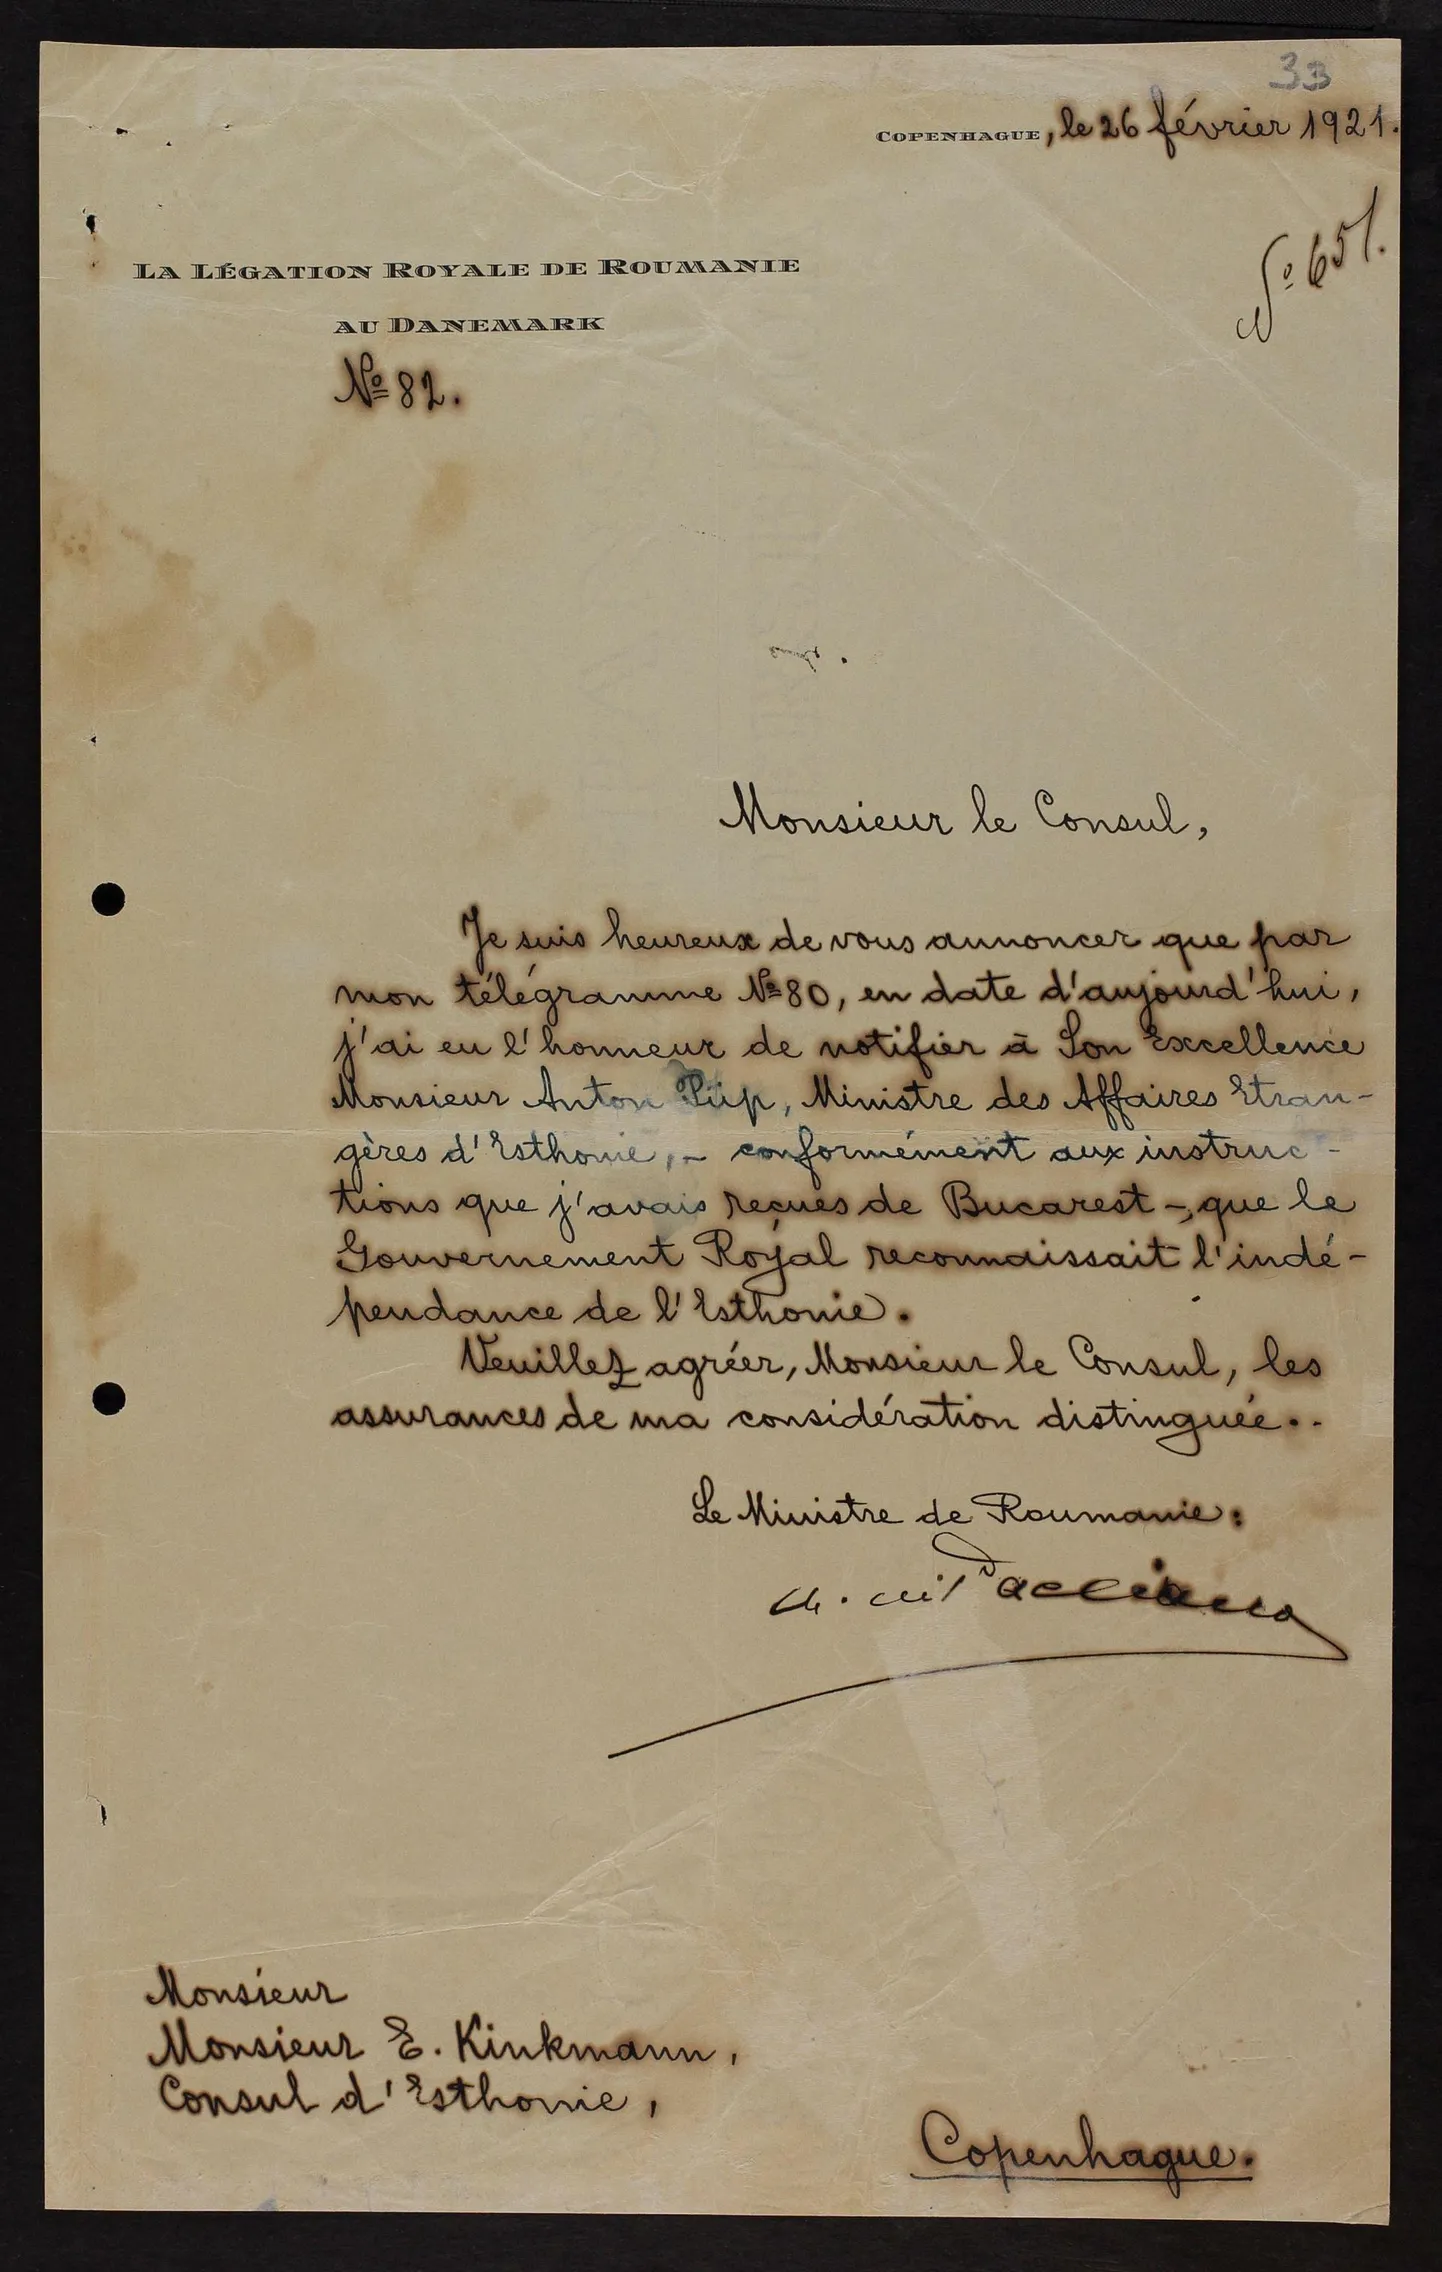 33
Copenhague, le 26 février 1921.
No 651.
La Légation Royale de Roumanie
au Danemark
No 82.
Monsieur le Consul,
Je suis heureux de vous annoncer que par
mon télégramme No 80, en date d'aujourd'hui,
j'ai eu l'honneur de notifier à Son Excellence
Monsieur Anton Piip, Ministre des Affaires Etran-
gères d'Esthonie, - conformément aux instruc-
tions que j'avais reçues de Bucarest -, que le
Gouvernement Royal reconnaissait l'indé-
pendance de l'Esthonie.
Veuillez agréer, Monsieur le Consul, les
assurances de ma considération distinguée. -
Le Ministre de Roumanie:
Monsieur
Monsieur E. Kinkmann,
Consul d'Esthonie,
Copenhague.